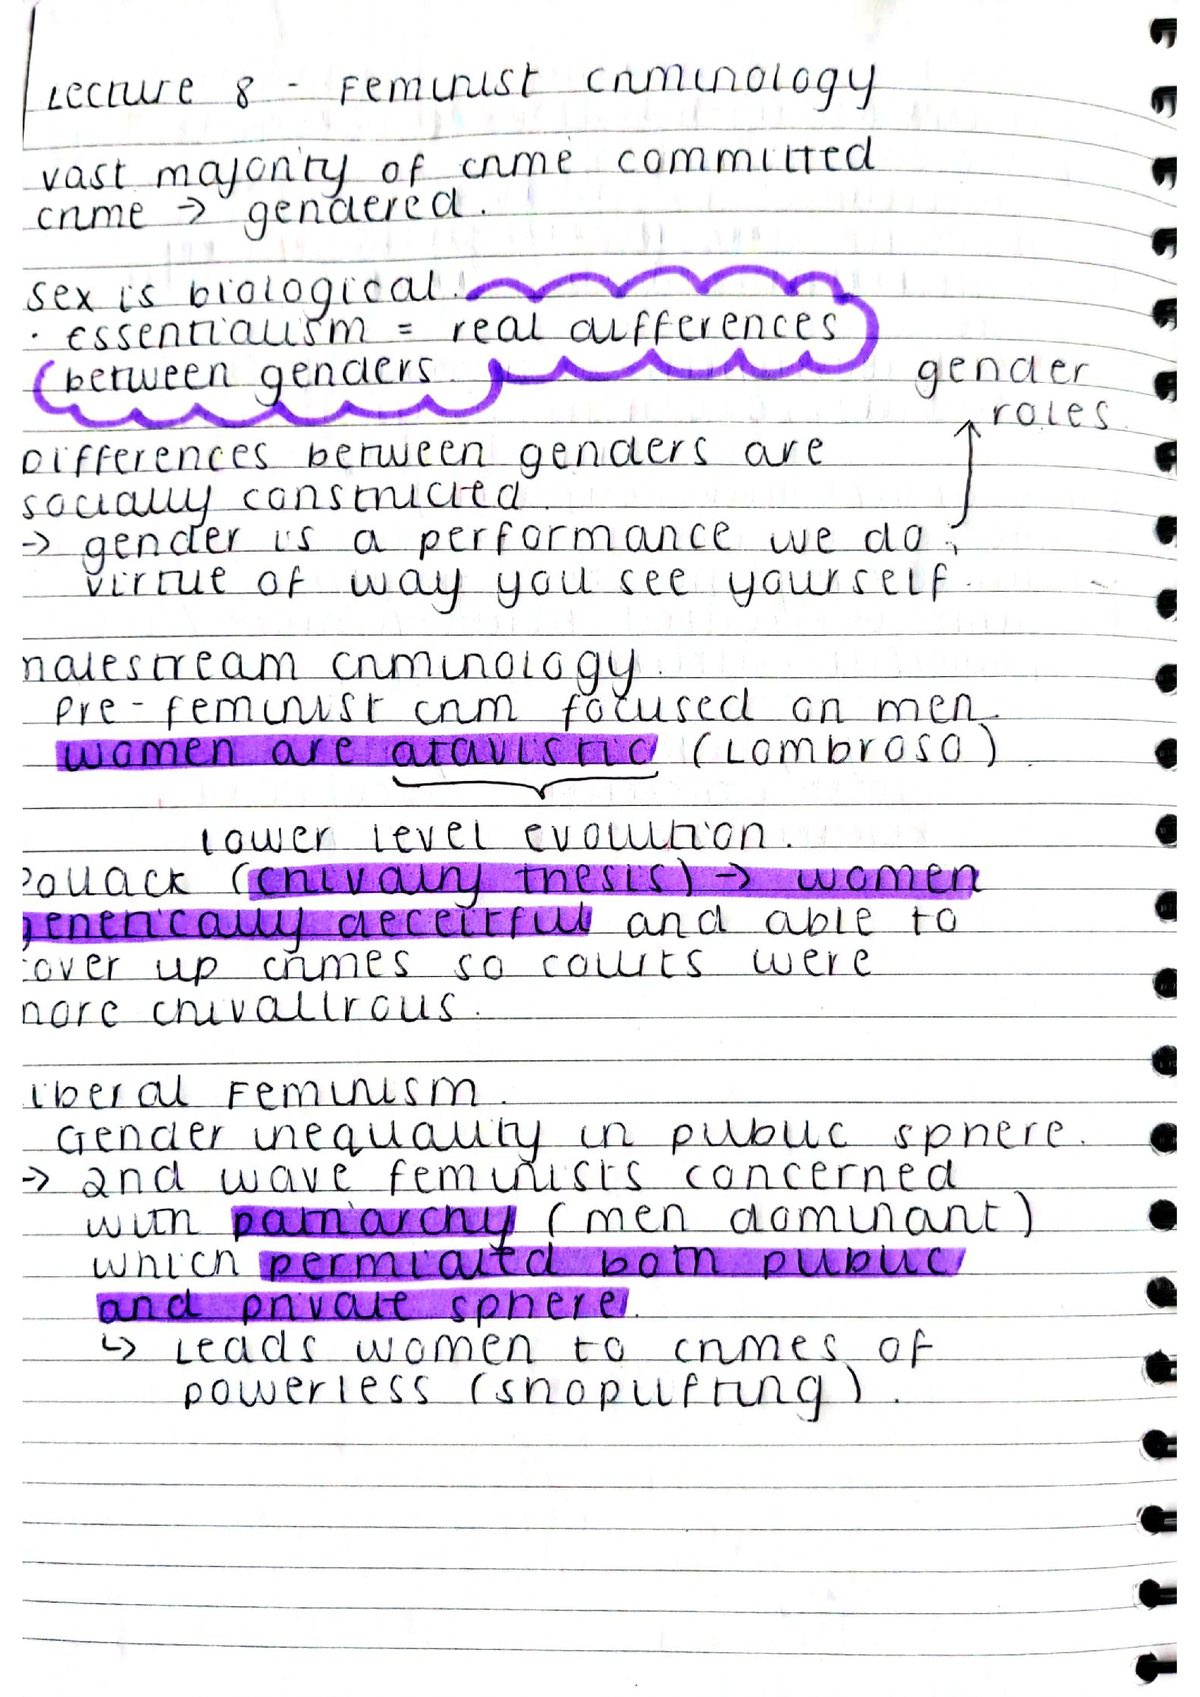 Lecture 8 - Feminist criminology
vast majority of crime committed
crime → gendered.
sex is biological.
· essentialism = real differences
(between genders.
gender
roles.
Differences between genders are
socially constructed.
→ gender is a performance we do.
virtue of way you see yourself.
nalestream criminology.
Pre-feminist crim focused on men.
women are atavistic (Lombroso).
lower level evolution.
Pollack (chivalry thesis) → women
genetically deceitful and able to
cover up crimes so courts were
nore chivallrous.
iberal Feminism.
Gender inequality in public sphere.
→ 2nd wave feminists concerned
with patriarchy (men dominant)
which permiated both public
and private sphere.
↳ Leads women to crimes of
powerless (shoplifting).